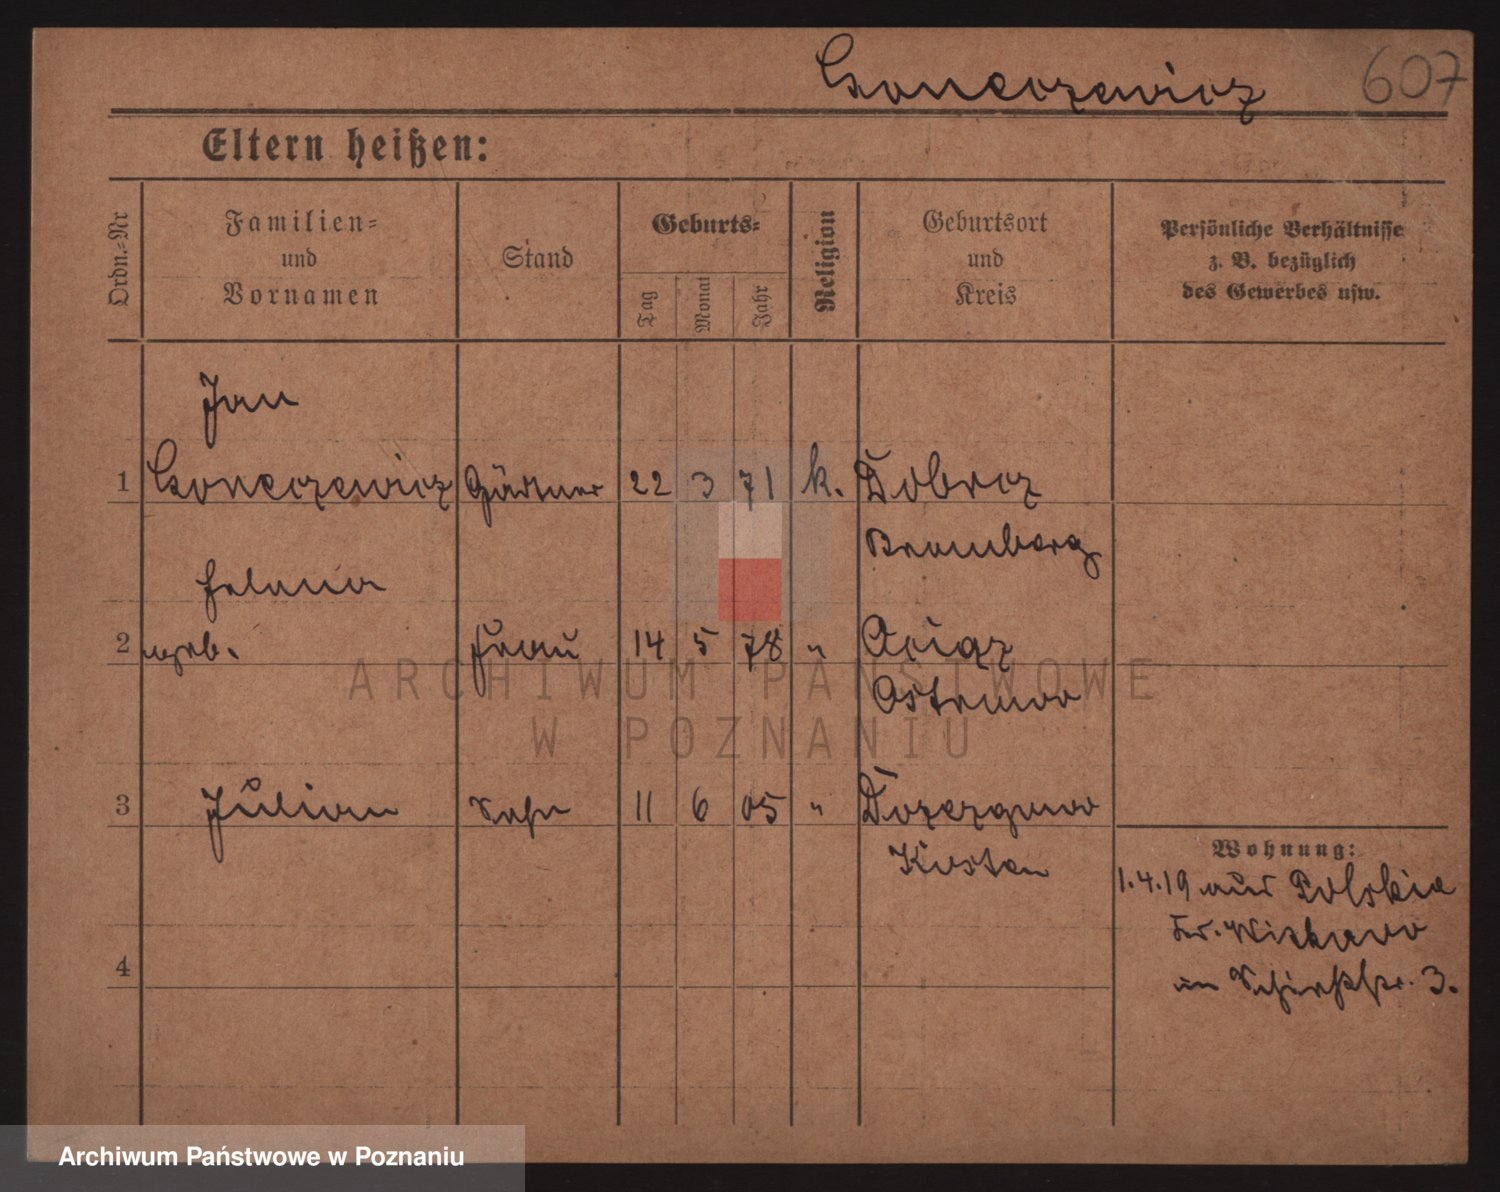 Gonerzewicz 607
Eltern heißen:
Ordn.=Nr
Familien=
und
Vornamen
Stand
Geburts=
Tag
Monat
Jahr
Religion
Geburtsort
und
Kreis
Persönliche Verhältnisse
z. B. bezüglich
des Gewerbes usw.
Jan
1 Gonerzewicz Gärtner 22 3 71 k. Dobrcz
Bromberg
Helena
2 geb. Frau 14 5 78 "
Ostrowo
3 Julian Sohn 11 6 05 "
Kosten
Wohnung:
1.4.19 aus Polskie
Kr. Witkowo
in 3.
4
ARCHIWUM PAŃSTWOWE
W POZNANIU
Archiwum Państwowe w Poznaniu